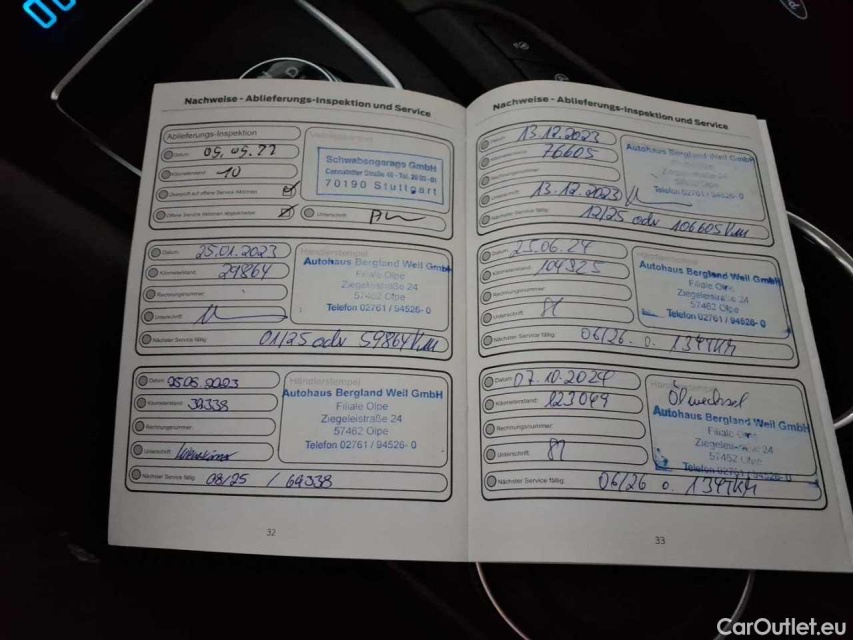 Nachweise - Ablieferungs-Inspektion und Service
Ablieferungs-Inspektion
Datum: 09.09.22
Kilometerstand: 10
Überprüft auf offene Service Aktionen
Offene Service Aktionen abgearbeitet
Unterschrift
Schwabengarage GmbH
70190 Stuttgart
Datum: 25.01.2023
Kilometerstand: 29864
Rechnungsnummer:
Unterschrift:
Nächster Service fällig: 01/25 odr 59864 Km
Händlerstempel
Autohaus Bergland Weil GmbH
Filiale Olpe
Ziegeleistraße 24
57462 Olpe
Telefon 02761 / 94526- 0
Datum:
Kilometerstand: 39338
Rechnungsnummer:
Unterschrift:
Nächster Service fällig: 08/25 / 69338
Händlerstempel
Autohaus Bergland Weil GmbH
Filiale Olpe
Ziegeleistraße 24
57462 Olpe
Telefon 02761 / 94526- 0
32
Nachweise - Ablieferungs-Inspektion und Service
Datum: 13.12.2023
Kilometerstand: 76605
Rechnungsnummer:
Unterschrift: 13.12.2023
Nächster Service fällig: 12/25 odr 106605 Km
Autohaus Bergland Weil GmbH
Telefon 02761 / 94526- 0
Datum: 25.06.24
Kilometerstand: 104325
Rechnungsnummer:
Unterschrift:
Nächster Service fällig: 06/26. o. 134TKM
Autohaus Bergland Weil GmbH
Filiale Olpe
Ziegeleistraße 24
57462 Olpe
Telefon 02761 / 94526- 0
Datum: 07.10.2024
Kilometerstand: 123049
Rechnungsnummer:
Unterschrift:
Nächster Service fällig: 06/26 o. 134TKM
Ölwechsel
Autohaus Bergland Weil GmbH
Filiale Olpe
Ziegeleistraße 24
57462 Olpe
Telefon 02761 / 94526- 0
33
CarOutlet.eu